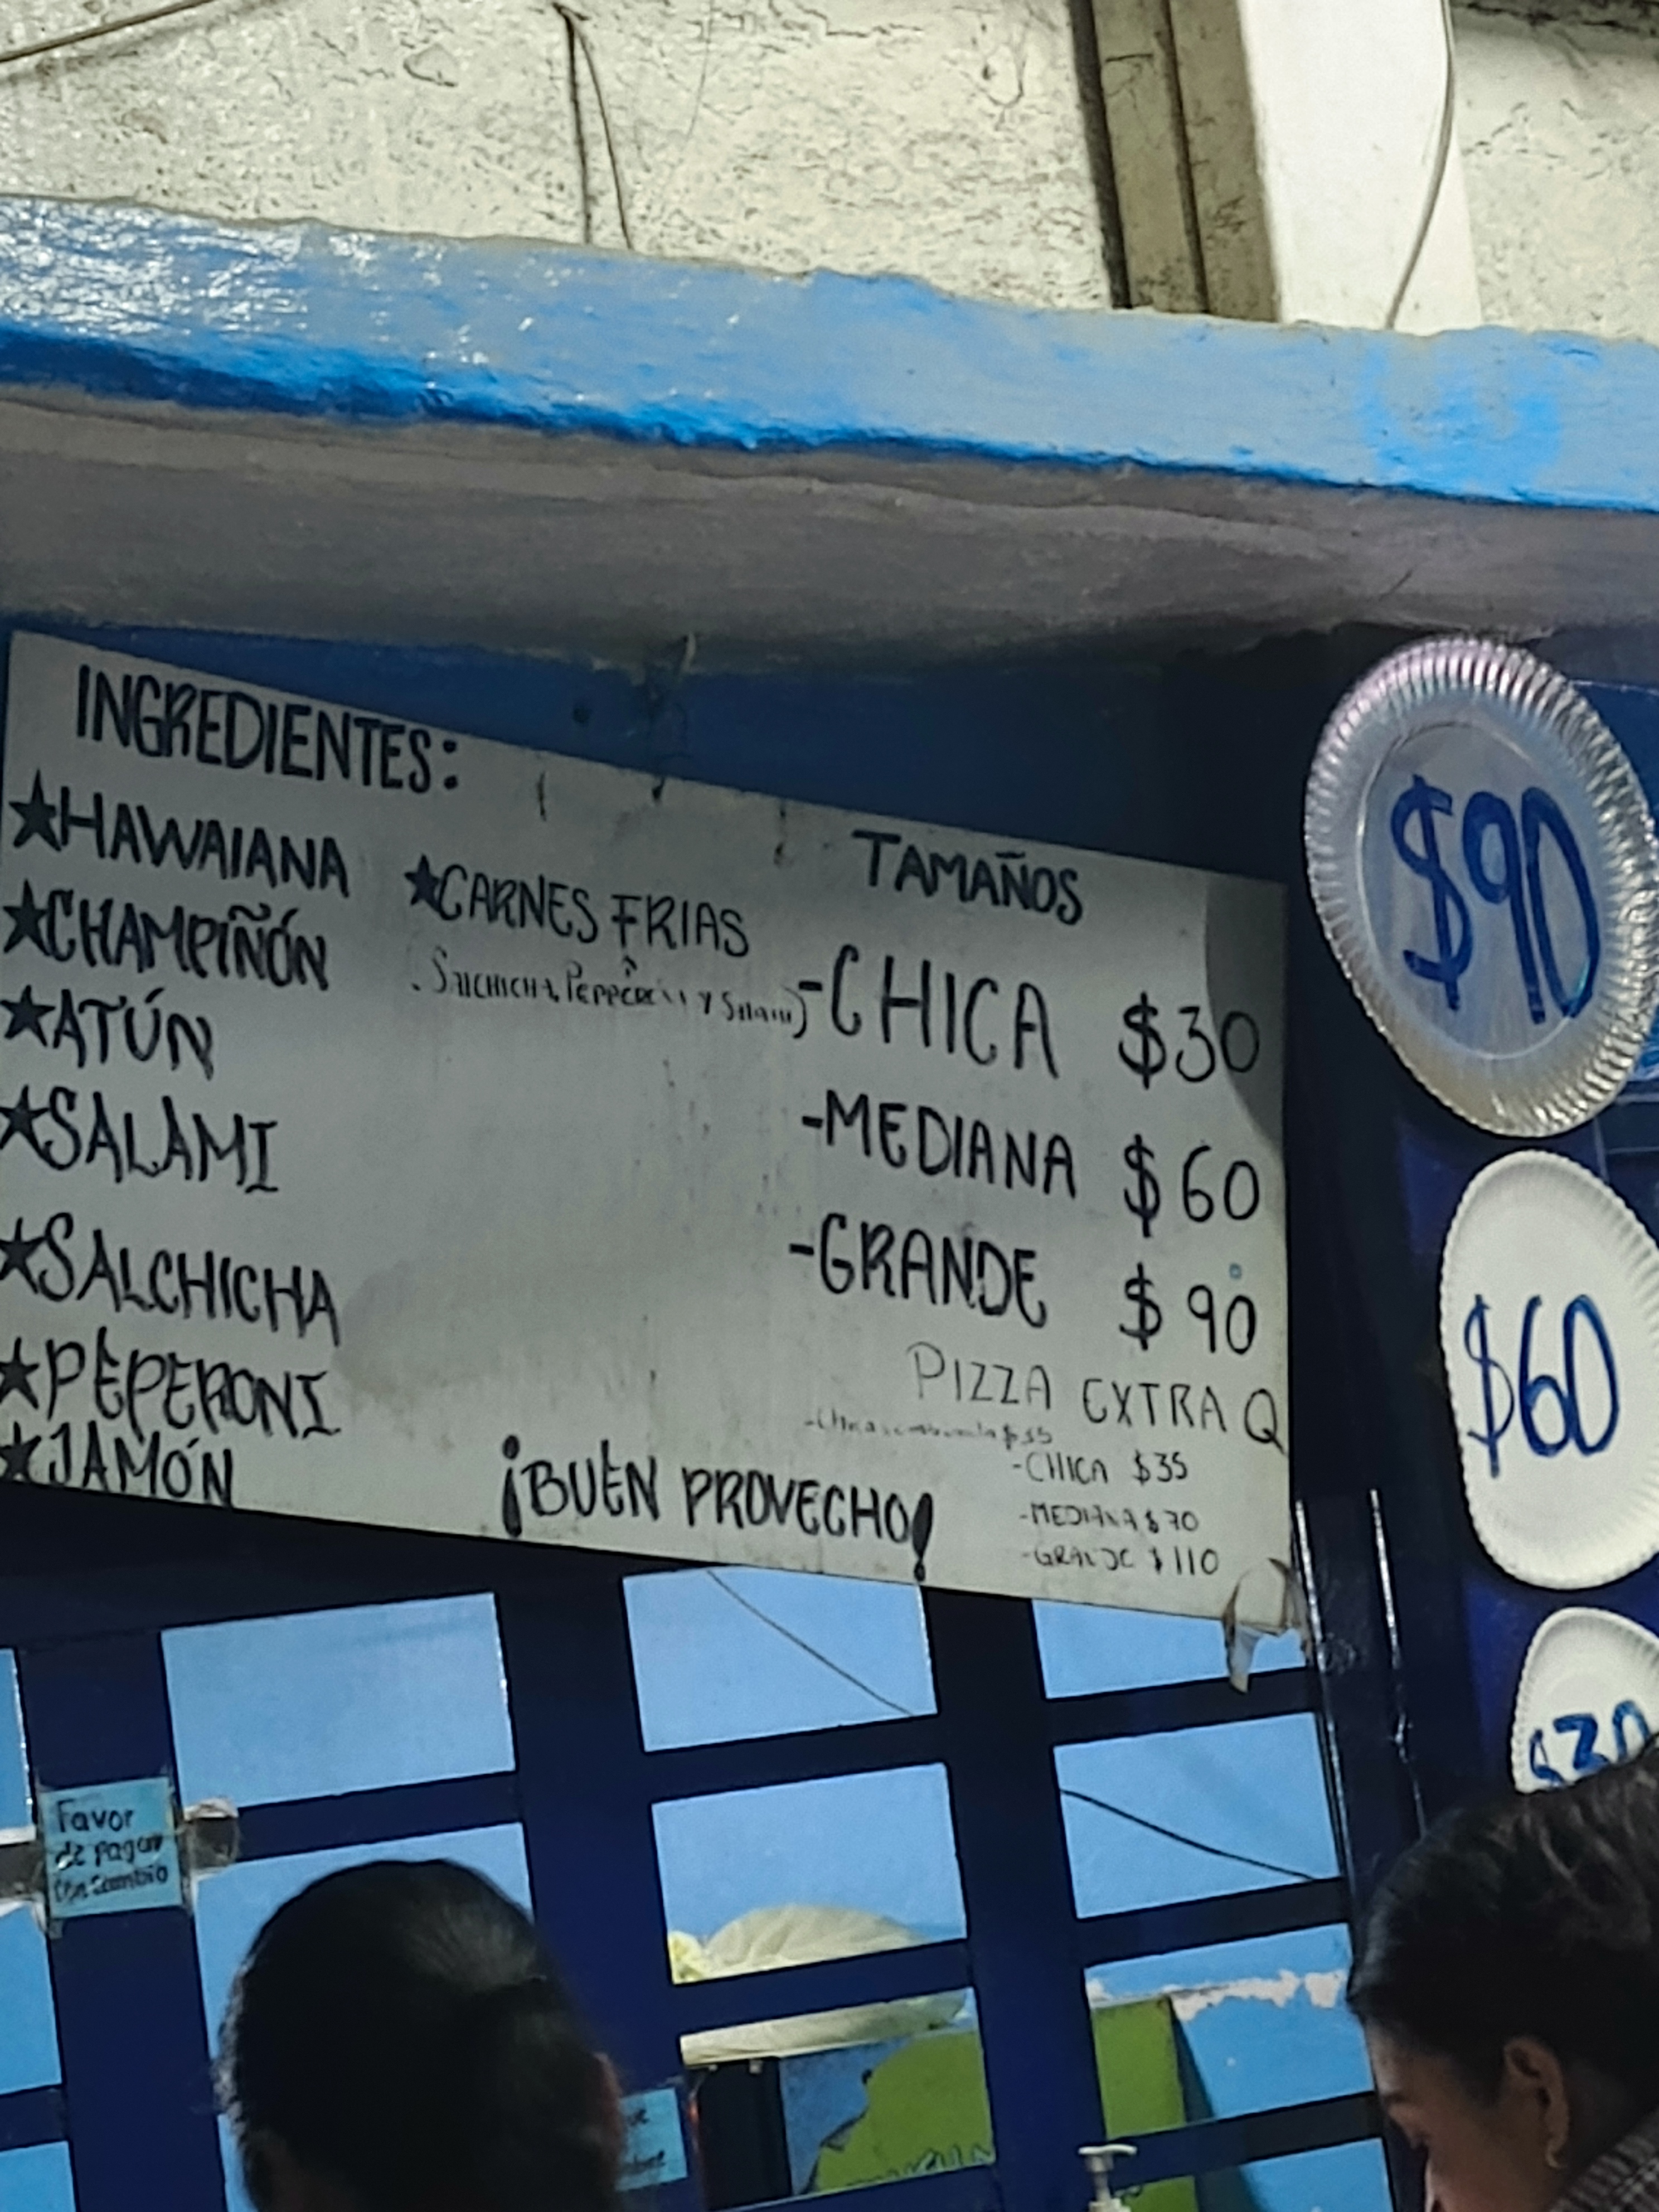 INGREDIENTES:
★HAWAIANA
★CHAMPIÑÓN
★ATÚN
★SALAMI
★SALCHICHA
★PEPERONI
★JAMÓN
★CARNES FRIAS
(SALCHICHA, PEPPERONI Y SALAMI)
TAMAÑOS
-CHICA $30
-MEDIANA $60
-GRANDE $90
PIZZA EXTRA Q
$35
-CHICA $35
-MEDIANA $70
-GRANDE $110
¡BUEN PROVECHO!
$90
$60
$30
Favor
de pagar
con cambio